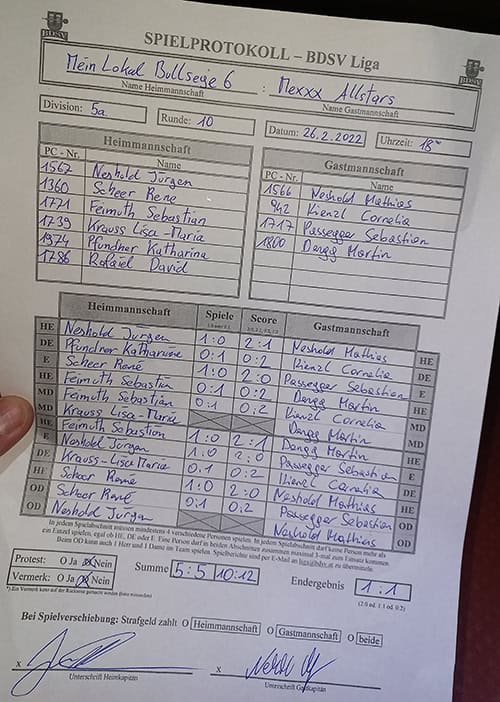 BDSV
BDSV
SPIELPROTOKOLL – BDSV Liga
Mein Lokal Bullseye 6 : Mexxx Allstars
Name Heimmannschaft Name Gastmannschaft
Division: 5a Runde: 10 Datum: 26.2.2022 Uhrzeit: 18
Heimmannschaft
PC - Nr. Name
1567 Neshold Jürgen
1360 Scheer Rene
1721 Feimuth Sebastian
1739 Krauss Lisa-Maria
1974 Pfundner Katharina
1786 Rafael David
Gastmannschaft
PC - Nr. Name
1566 Neshold Mathias
942 Kienzl Cornelia
1717 Passegger Sebastian
1800 Dangg Martin
Heimmannschaft Spiele Score Gastmannschaft
HE Neshold Jürgen 1:0 2:1 Neshold Mathias HE
DE Pfundner Katharina 0:1 0:2 Kienzl Cornelia DE
E Scheer René 1:0 2:0 Passegger Sebastian E
HE Feimuth Sebastian 0:1 0:2 Dangg Martin HE
MD Feimuth Sebastian 0:1 0:2 Kienzl Cornelia MD
MD Krauss Lisa-Maria Dangg Martin MD
HE Feimuth Sebastian 1:0 2:1 Dangg Martin HE
E Neshold Jürgen 1:0 2:0 Passegger Sebastian E
DE Krauss-Lisa Maria 0:1 0:2 Kienzl Cornelia DE
HE Scheer René 1:0 2:0 Neshold Mathias HE
OD Scheer René 0:1 0:2 Passegger Sebastian OD
OD Neshold Jürgen Neshold Mathias OD
In jedem Spielabschnitt müssen mindestens 4 verschiedene Personen spielen. In jedem Spielabschnitt darf keine Person mehr als
ein Einzel spielen, egal ob HE, DE oder E. Eine Person darf in beiden Abschnitten zusammen maximal 3-mal zum Einsatz kommen.
Beim OD kann auch 1 Herr und 1 Dame im Team spielen. Spielberichte sind per E-Mail an liga@bdsv.at zu übermitteln.
Protest: O Ja Nein
Vermerk: O Ja Nein
Summe 5:5 10:12 Endergebnis 1:1
(2:0 od. 1:1 od. 0:2)
*) Ein Vermerk kann auf der Rückseite gemacht werden
Bei Spielverschiebung: Strafgeld zahlt O Heimmannschaft O Gastmannschaft O beide
x x
Unterschrift Heimkapitän Unterschrift Gastkapitän